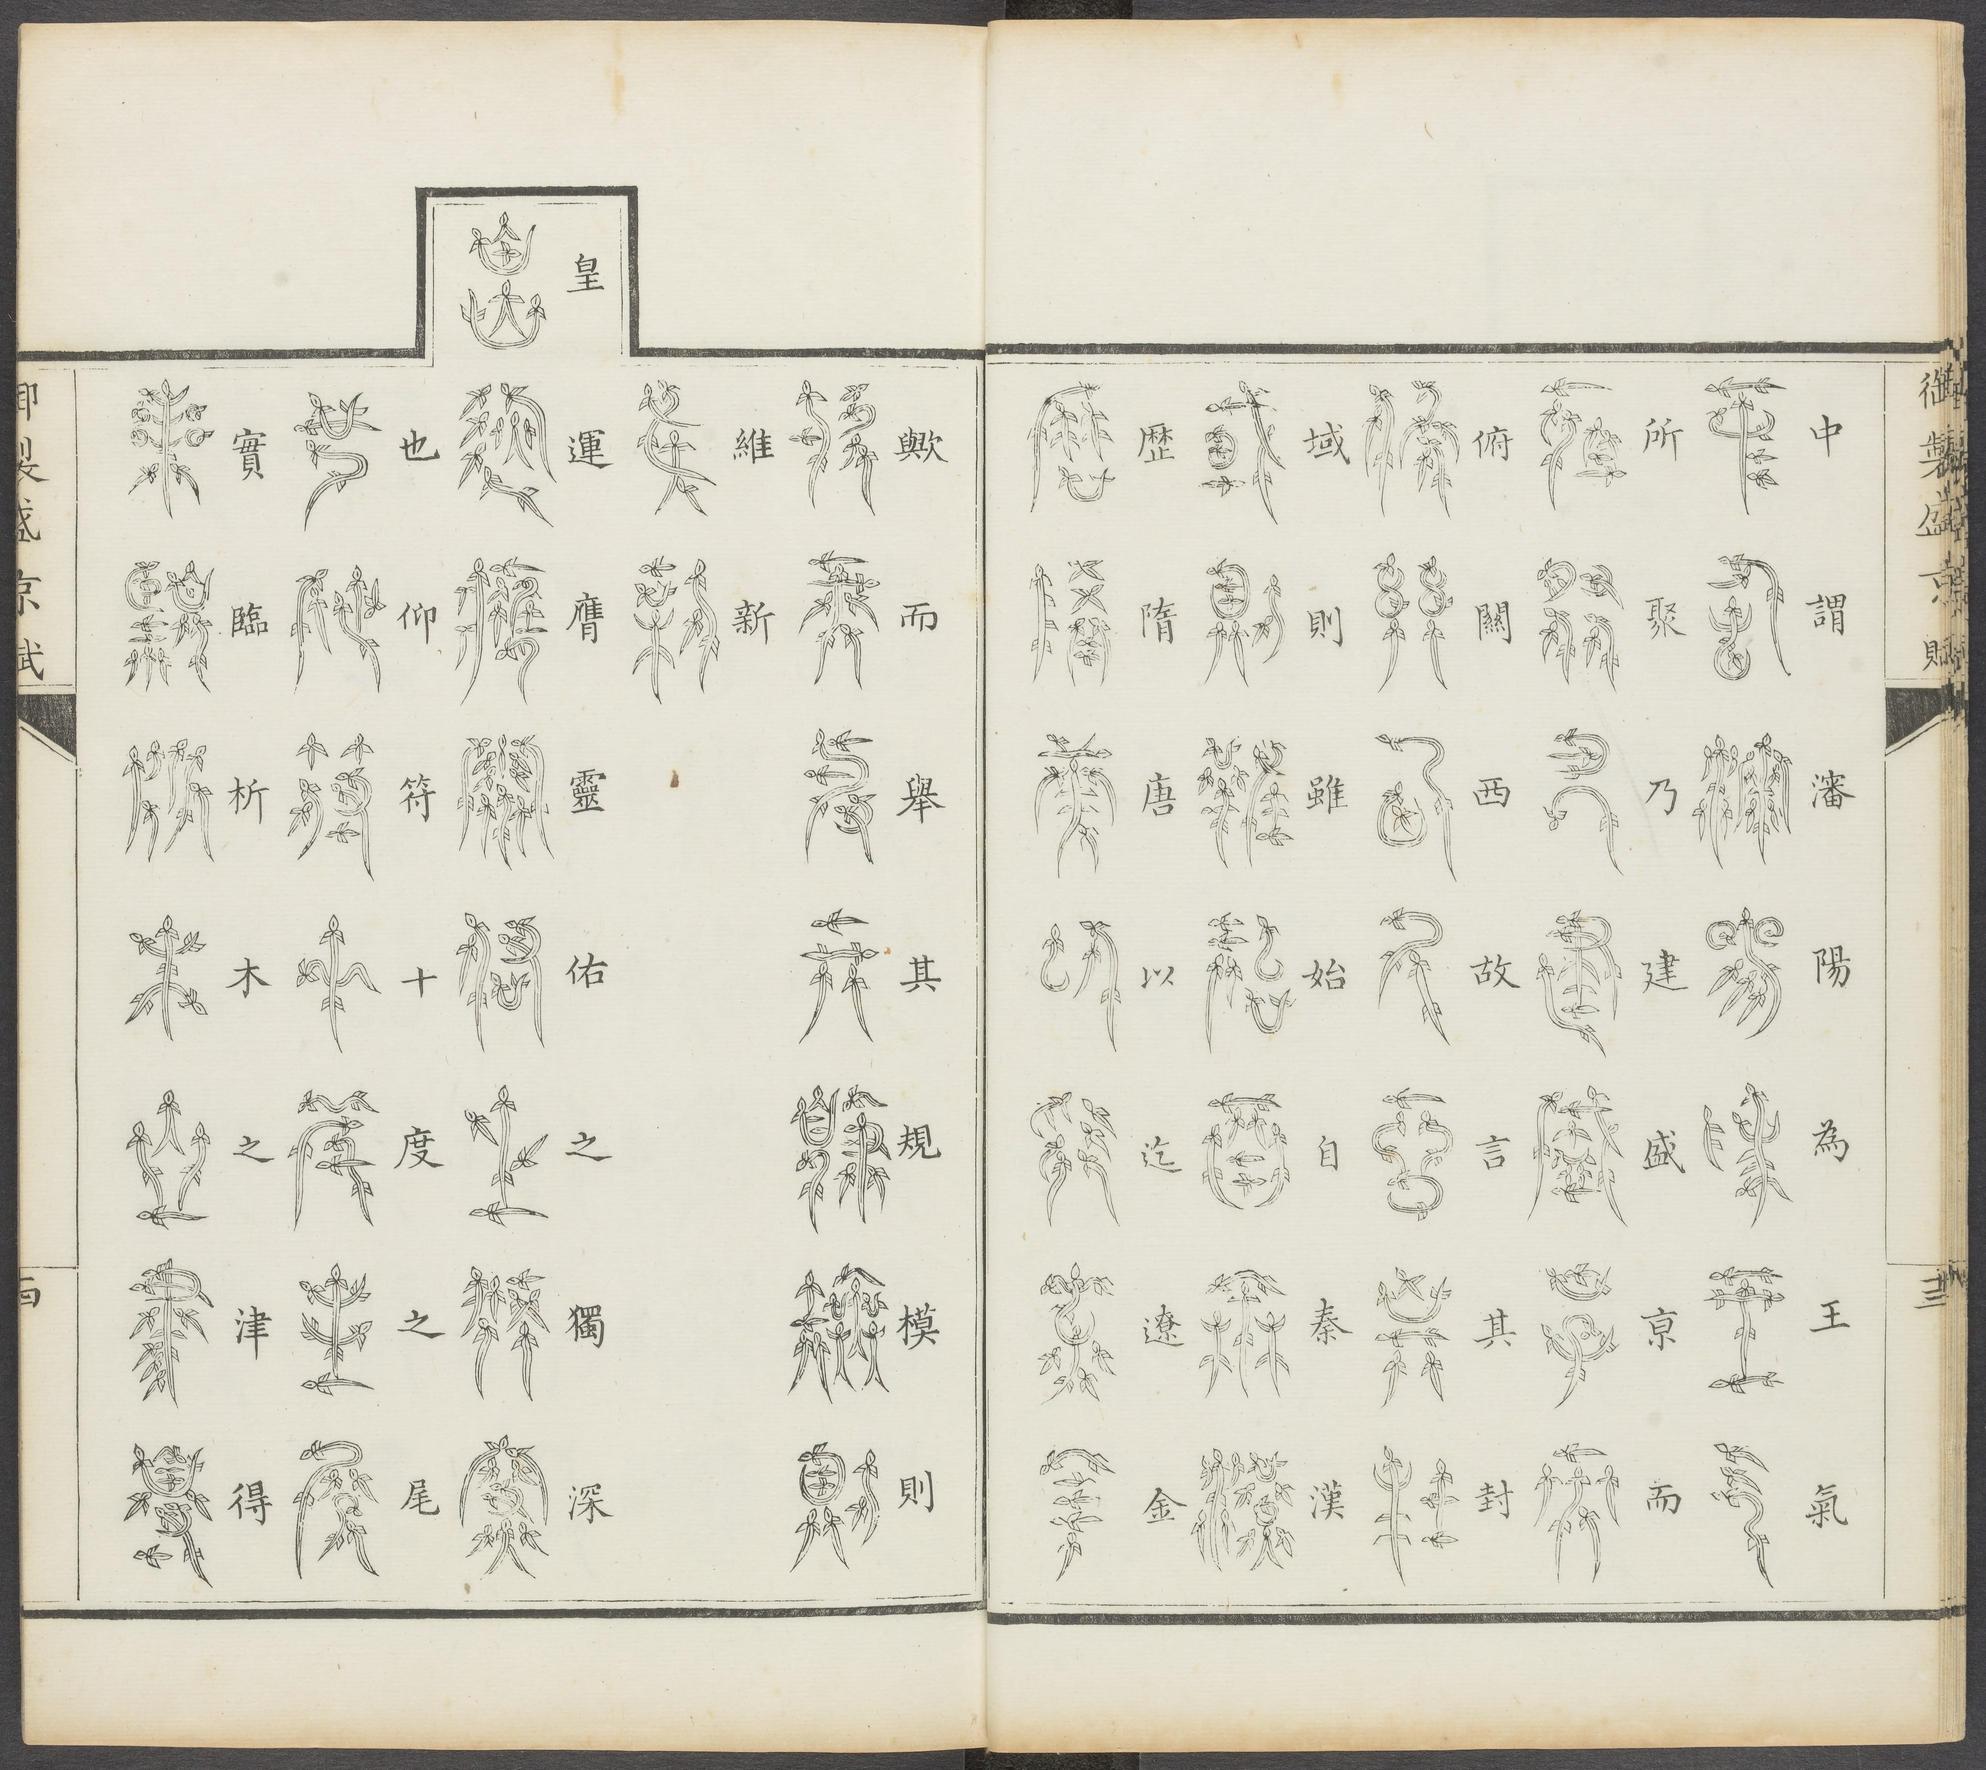 御製盛京賦
三
中謂瀋陽為王氣
所聚乃建盛京而
俯關西故言其封
域則雖始自秦漢
歷隋唐以迄遼金
歟而舉其規模則
維新
皇運膺靈佑之獨深
也仰符十度之尾
實臨析木之津得
御製盛京賦
四